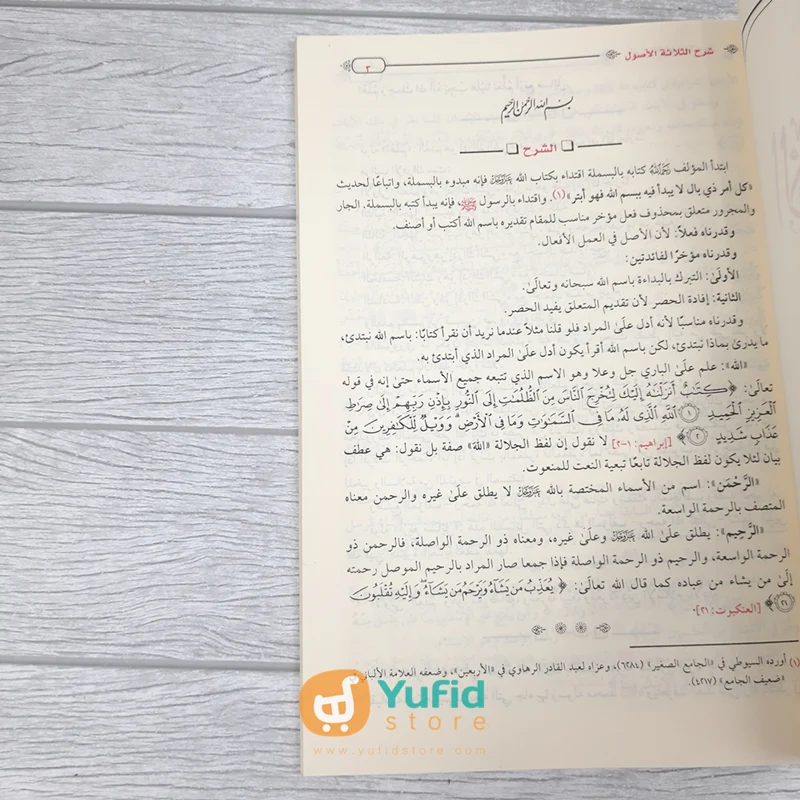 شرح الثلاثة الأصول
٣
بسم الله الرحمن الرحيم
الشرح
ابتدأ المؤلف رحمه الله كتابه بالبسملة اقتداء بكتاب الله عز وجل فإنه مبدوء بالبسملة، واتباعًا لحديث
«كل أمر ذي بال لا يبدأ فيه ببسم الله فهو أبتر»(١). واقتداء بالرسول ﷺ، فإنه يبدأ كتبه بالبسملة. الجار
والمجرور متعلق بمحذوف فعل مؤخر مناسب للمقام تقديره باسم الله أكتب أو أصنف.
وقدرناه فعلاً: لأن الأصل في العمل الأفعال.
وقدرناه مؤخرًا لفائدتين:
الأولىٰ: التبرك بالبداءة باسم الله سبحانه وتعالىٰ.
الثانية: إفادة الحصر لأن تقديم المتعلق يفيد الحصر.
وقدرناه مناسبًا لأنه أدل علىٰ المراد فلو قلنا مثلاً عندما نريد أن نقرأ كتابًا: باسم الله نبتدئ،
ما يدرىٰ بماذا نبتدئ، لكن باسم الله أقرأ يكون أدل علىٰ المراد الذي أبتدئ به.
«الله»: علم علىٰ الباري جل وعلا وهو الاسم الذي تتبعه جميع الأسماء حتىٰ إنه في قوله
تعالىٰ: ﴿كِتَٰبٌ أَنزَلْنَٰهُ إِلَيْكَ لِتُخْرِجَ ٱلنَّاسَ مِنَ ٱلظُّلُمَٰتِ إِلَى ٱلنُّورِ بِإِذْنِ رَبِّهِمْ إِلَىٰ صِرَٰطِ
ٱلْعَزِيزِ ٱلْحَمِيدِ ١ ٱللَّهِ ٱلَّذِى لَهُۥ مَا فِى ٱلسَّمَٰوَٰتِ وَمَا فِى ٱلْأَرْضِ ۗ وَوَيْلٌ لِّلْكَٰفِرِينَ مِنْ
عَذَابٍ شَدِيدٍ ٢﴾ [إبراهيم: ١-٢] لا نقول إن لفظ الجلالة «الله» صفة بل نقول: هي عطف
بيان لئلا يكون لفظ الجلالة تابعًا تبعية النعت للمنعوت.
«الرَّحْمَن»: اسم من الأسماء المختصة بالله عز وجل لا يطلق علىٰ غيره والرحمن معناه
المتصف بالرحمة الواسعة.
«الرَّحِيم»: يطلق علىٰ الله عز وجل وعلىٰ غيره، ومعناه ذو الرحمة الواصلة، فالرحمن ذو
الرحمة الواسعة، والرحيم ذو الرحمة الواصلة فإذا جمعا صار المراد بالرحيم الموصل رحمته
إلىٰ من يشاء من عباده كما قال الله تعالىٰ: ﴿يُعَذِّبُ مَن يَشَآءُ وَيَرْحَمُ مَن يَشَآءُ ۖ وَإِلَيْهِ تُقْلَبُونَ
٢١﴾ [العنكبوت: ٢١].
(١) أورده السيوطي في «الجامع الصغير» (٦٢٨٤)، وعزاه لعبد القادر الرهاوي في «الأربعين»، وضعفه العلامة الألباني
«ضعيف الجامع» (٤٢١٧).
Yufid
store
www.yufidstore.com